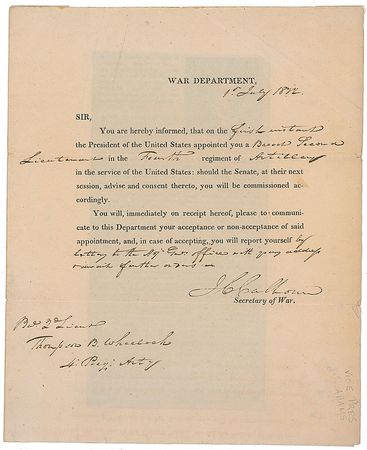 WAR DEPARTMENT,
1st July 1822.
SIR,
You are hereby informed, that on the first instant
the President of the United States appointed you a Brevet Second
Lieutenant in the Fourth regiment of Artillery
in the service of the United States: should the Senate, at their next
session, advise and consent thereto, you will be commissioned ac-
cordingly.
You will, immediately on receipt hereof, please to communi-
cate to this Department your acceptance or non-acceptance of said
appointment; and, in case of accepting, you will report yourself by
letter to the Adj. Genl. office with your address
& await further orders
J C Calhoun
Secretary of War.
Bt. 2d Lieut
Thompson B. Wheelock
4 Regt. Arty
VICE PRES
ADAMS